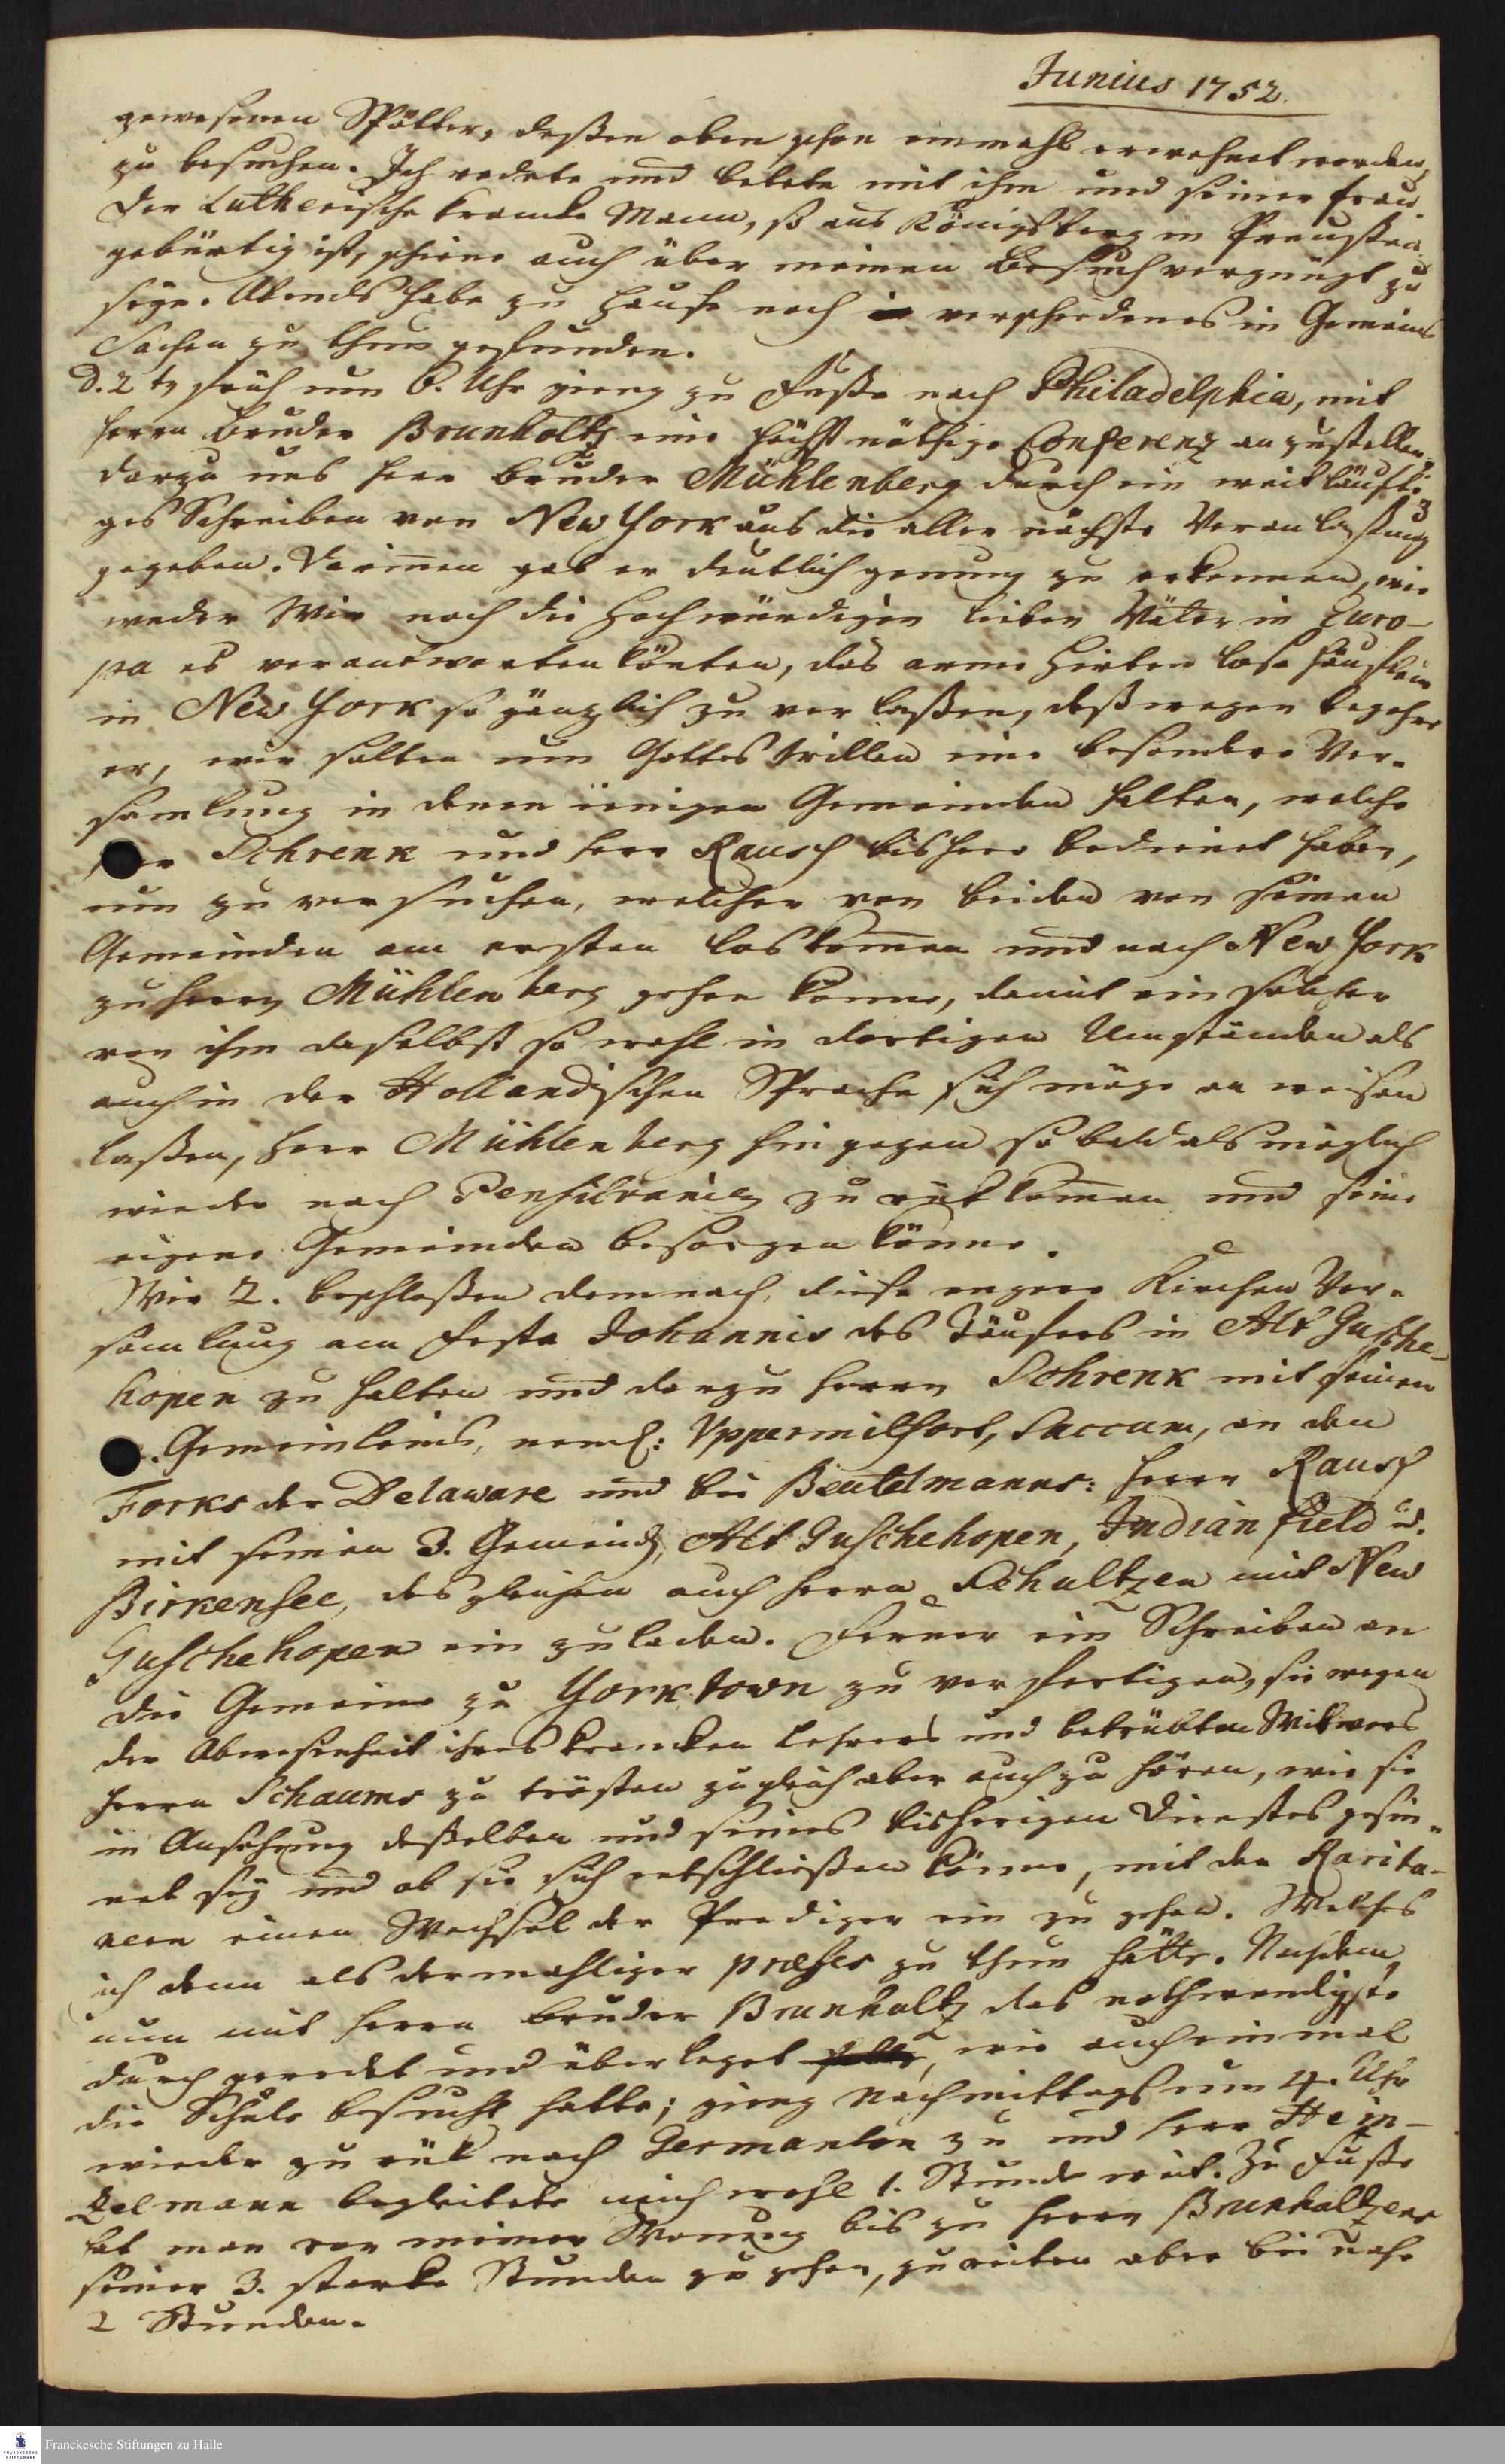 Junius 1752.
gewesenen Spötter, deßen oben schon einmahl erwehnet worden,
zu besuchen. Ich redete und betete mit ihm und seiner Frau.
Der Lutherische krancke Mann, so aus Königsberg in Preußen
gebürtig ist, schiene auch über meinen Besuch vergnügt zu
seyn. Abends habe zu Hause noch verschiedenes in Gemeind
Sachen zu thun gefunden.
d. 2 t früh um 6. Uhr gieng zu Fuße nach Philadelphia, mit
Herrn Bruder Brunholtz eine höchst nöthige Conferenz anzustellen,
darzu uns Herr Bruder Mühlenberg durch ein weitläufti-
ges Schreiben von New York aus die aller nächste Veranlaßung
gegeben. Darinnen gab er deutlich genung zu erkennen, wie
weder Wir noch die Hochwürdigen lieben Väter in Euro-
pa es verantworten könten, das arme Hirten lose Häuflein
in New York so gänzlich zu verlaßen, deßwegen begehre
er, wir solten um Gottes Willen eine besondere Ver-
samlung in denen ienigen Gemeinden halten, welche
Herr Schrenk und Herr Rausch bishero bedienet haben,
um zu versuchen, welcher von beiden von seinen
Gemeinden am ersten loskommen und nach New York
zu Herrn Mühlenberg gehen könne, damit ein solcher
von ihm daselbst so wohl in dortigen Umständen als
auch in der Hollandischen Sprache sich möge an weisen
laßen, Herr Mühlenberg hingegen so bald als möglich
wieder nach Pensilvanien zurükkommen und seine
eigene Gemeinden besorgen könne.
Wir 2. beschloßen demnach, diese engere Kirchen Ver-
samlung am Feste Johannis des Täufers in Alt Gusche-
hopen zu halten und darzu Herrn Schrenk mit seinen
Gemeinleins, neml: Uppermilfort, Saccum, an den
Forks der Delaware und bei Beutelmanns: Herrn Rausch
mit seinen 3. Gemeind, Alt Guschehopen, Indianfield ud.
Birkensee, desgleichen auch Herrn Schultzen mit New
Guschehopen ein zuladen. Ferner ein Schreiben an
die Gemeine zu Yorktown zu verfertigen, sie wegen
der Abwesenheit ihres krancken Lehrers und betrübten Witwers
Herrn Schaums zu trösten zugleich aber auch zu hören, wie sie
in Ansehung deßelben und seines bisherigen Dienstes gesin-
net sey und ob sie sich entschließen könne, mit den Rarita-
nern einen Wechsel der Prediger ein zu gehen. Welches
ich denn als dermahliger præses zu thun hätte. Nachdem
nun mit Herrn Bruder Brunholtz das nothwendigste
durch geredet und überleget, wie auch einmal
die Schule besucht hatte; gieng Nachmittags um 4. Uhr
wieder zurük nach Germanton zu und Herr Hein-
zelmann begleitete mich wohl 1. Stunde weit. Zu Fuße
hat man von meiner Wonung bis zu Herrn Brunholtzens
seiner 3. starke Stunden zu gehen, zu reiten aber bei nahe
2 Stunden.
Franckesche Stiftungen zu Halle